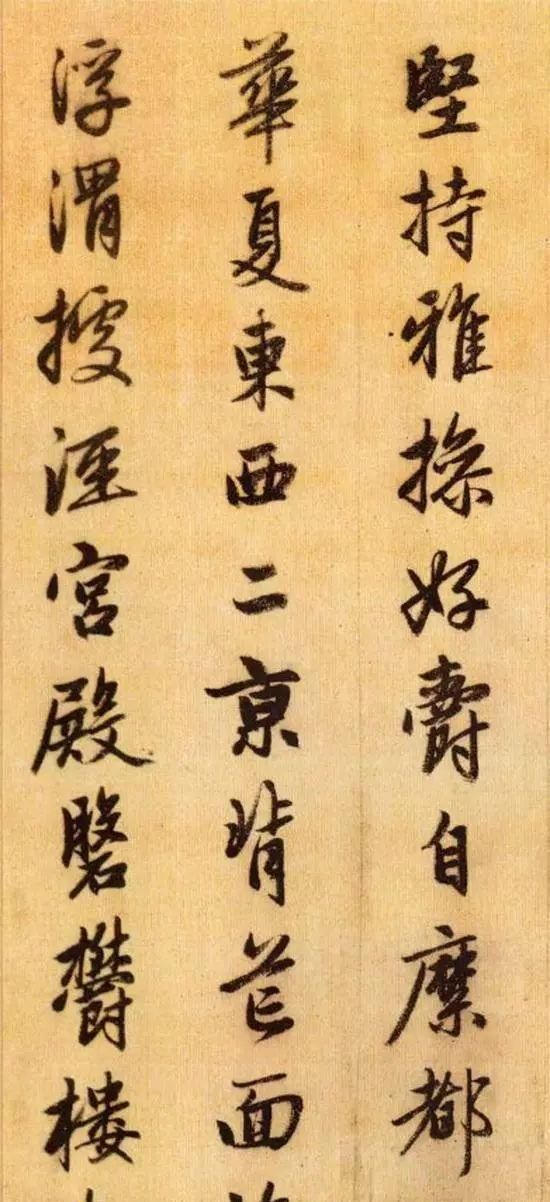 堅持雅操好爵自縻都
華夏東西二京背芒面
浮渭據涇宮殿磐鬱樓